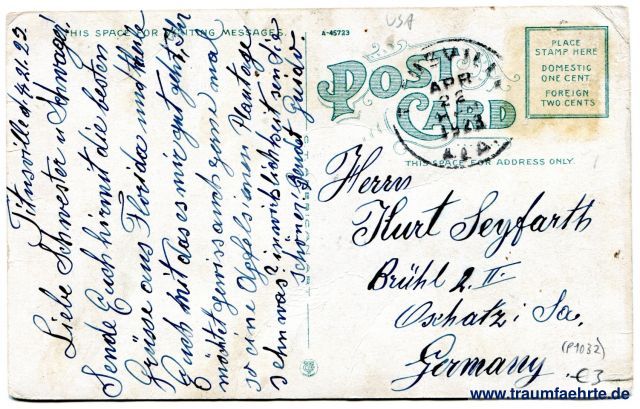 THIS SPACE FOR WRITING MESSAGES.
A-45723
USA
POST CARD
PLACE
STAMP HERE
DOMESTIC
ONE CENT.
FOREIGN
TWO CENTS
APR
22
1923
THIS SPACE FOR ADDRESS ONLY.
Titusville d. 4.21.23.
Liebe Schwester u Schwager!
Sende Euch hiermit die besten
Grüsse aus Florida und teile
Euch mit das es mir gut geht, Ihr
möchtet gewiss auch gerne mal
so eine Apfelsienen Plantage
sehn was? in wirklichkeit sein Sie
schöner. Bendet Guido.
Herrn
Kurt Seyfarth
Brühl 2. II.
Oschatz i Sa.
Germany.
(P1032)
€3-
www.traumfaehrte.de